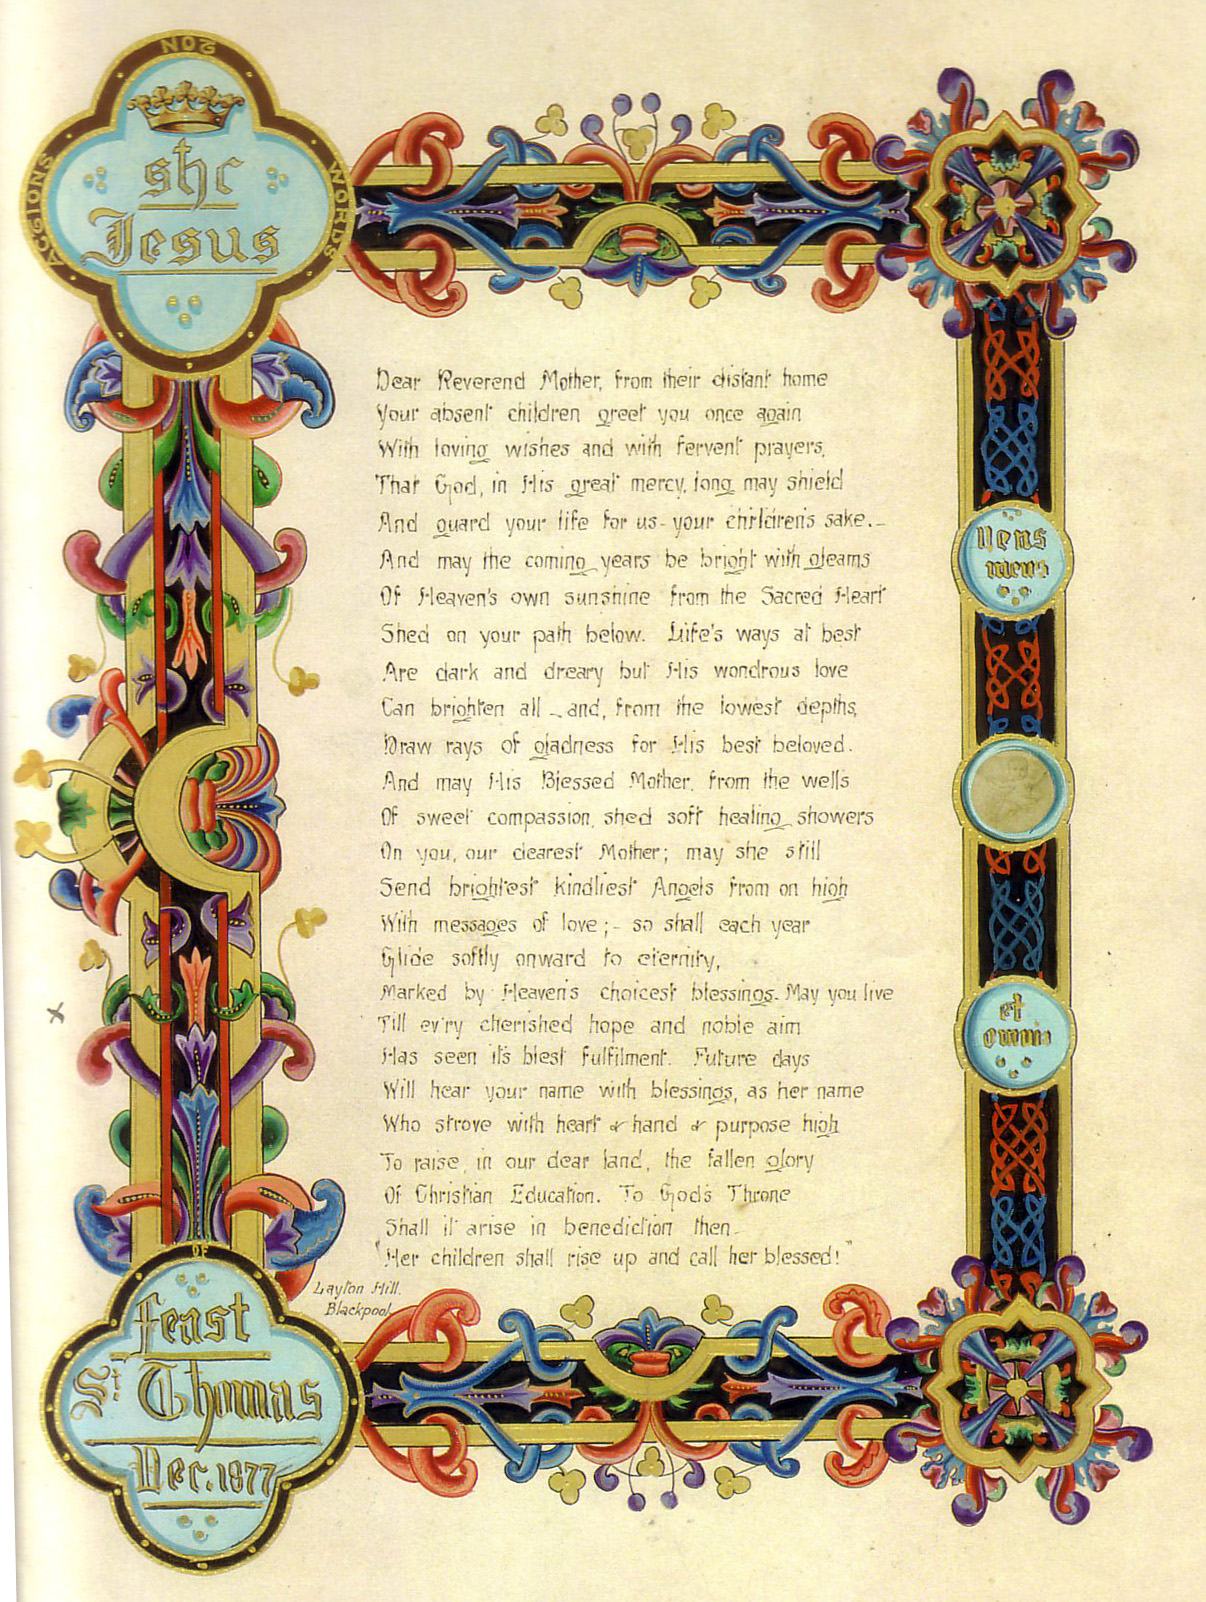 ACTIONS NOT WORDS
shc
Jesus
Dear Reverend Mother, from their distant home
Your absent children greet you once again
With loving wishes and with fervent prayers,
That God, in His great mercy, long may shield
And guard your life for us - your children's sake. -
And may the coming years be bright with gleams
Of Heaven's own sunshine from the Sacred Heart
Shed on your path below. Life's ways at best
Are dark and dreary but His wondrous love
Can brighten all - and, from the lowest depths,
Draw rays of gladness for His best beloved.
And may His Blessed Mother, from the wells
Of sweet compassion, shed soft healing showers
On you, our dearest Mother; may she still
Send brightest kindliest Angels from on high
With messages of love; - so shall each year
Glide softly onward to eternity,
Marked by Heaven's choicest blessings. May you live
Till ev'ry cherished hope and noble aim
Has seen its blest fulfilment. Future days
Will hear your name with blessings, as her name
Who strove with heart & hand & purpose high
To raise, in our dear land, the fallen glory
Of Christian Education. To God's Throne
Shall it arise in benediction then -
"Her children shall rise up and call her blessed!"
Layton Hill.
Blackpool.
Deus
meus
et
omnia
OF
Feast
St Thomas
Dec. 1877
x